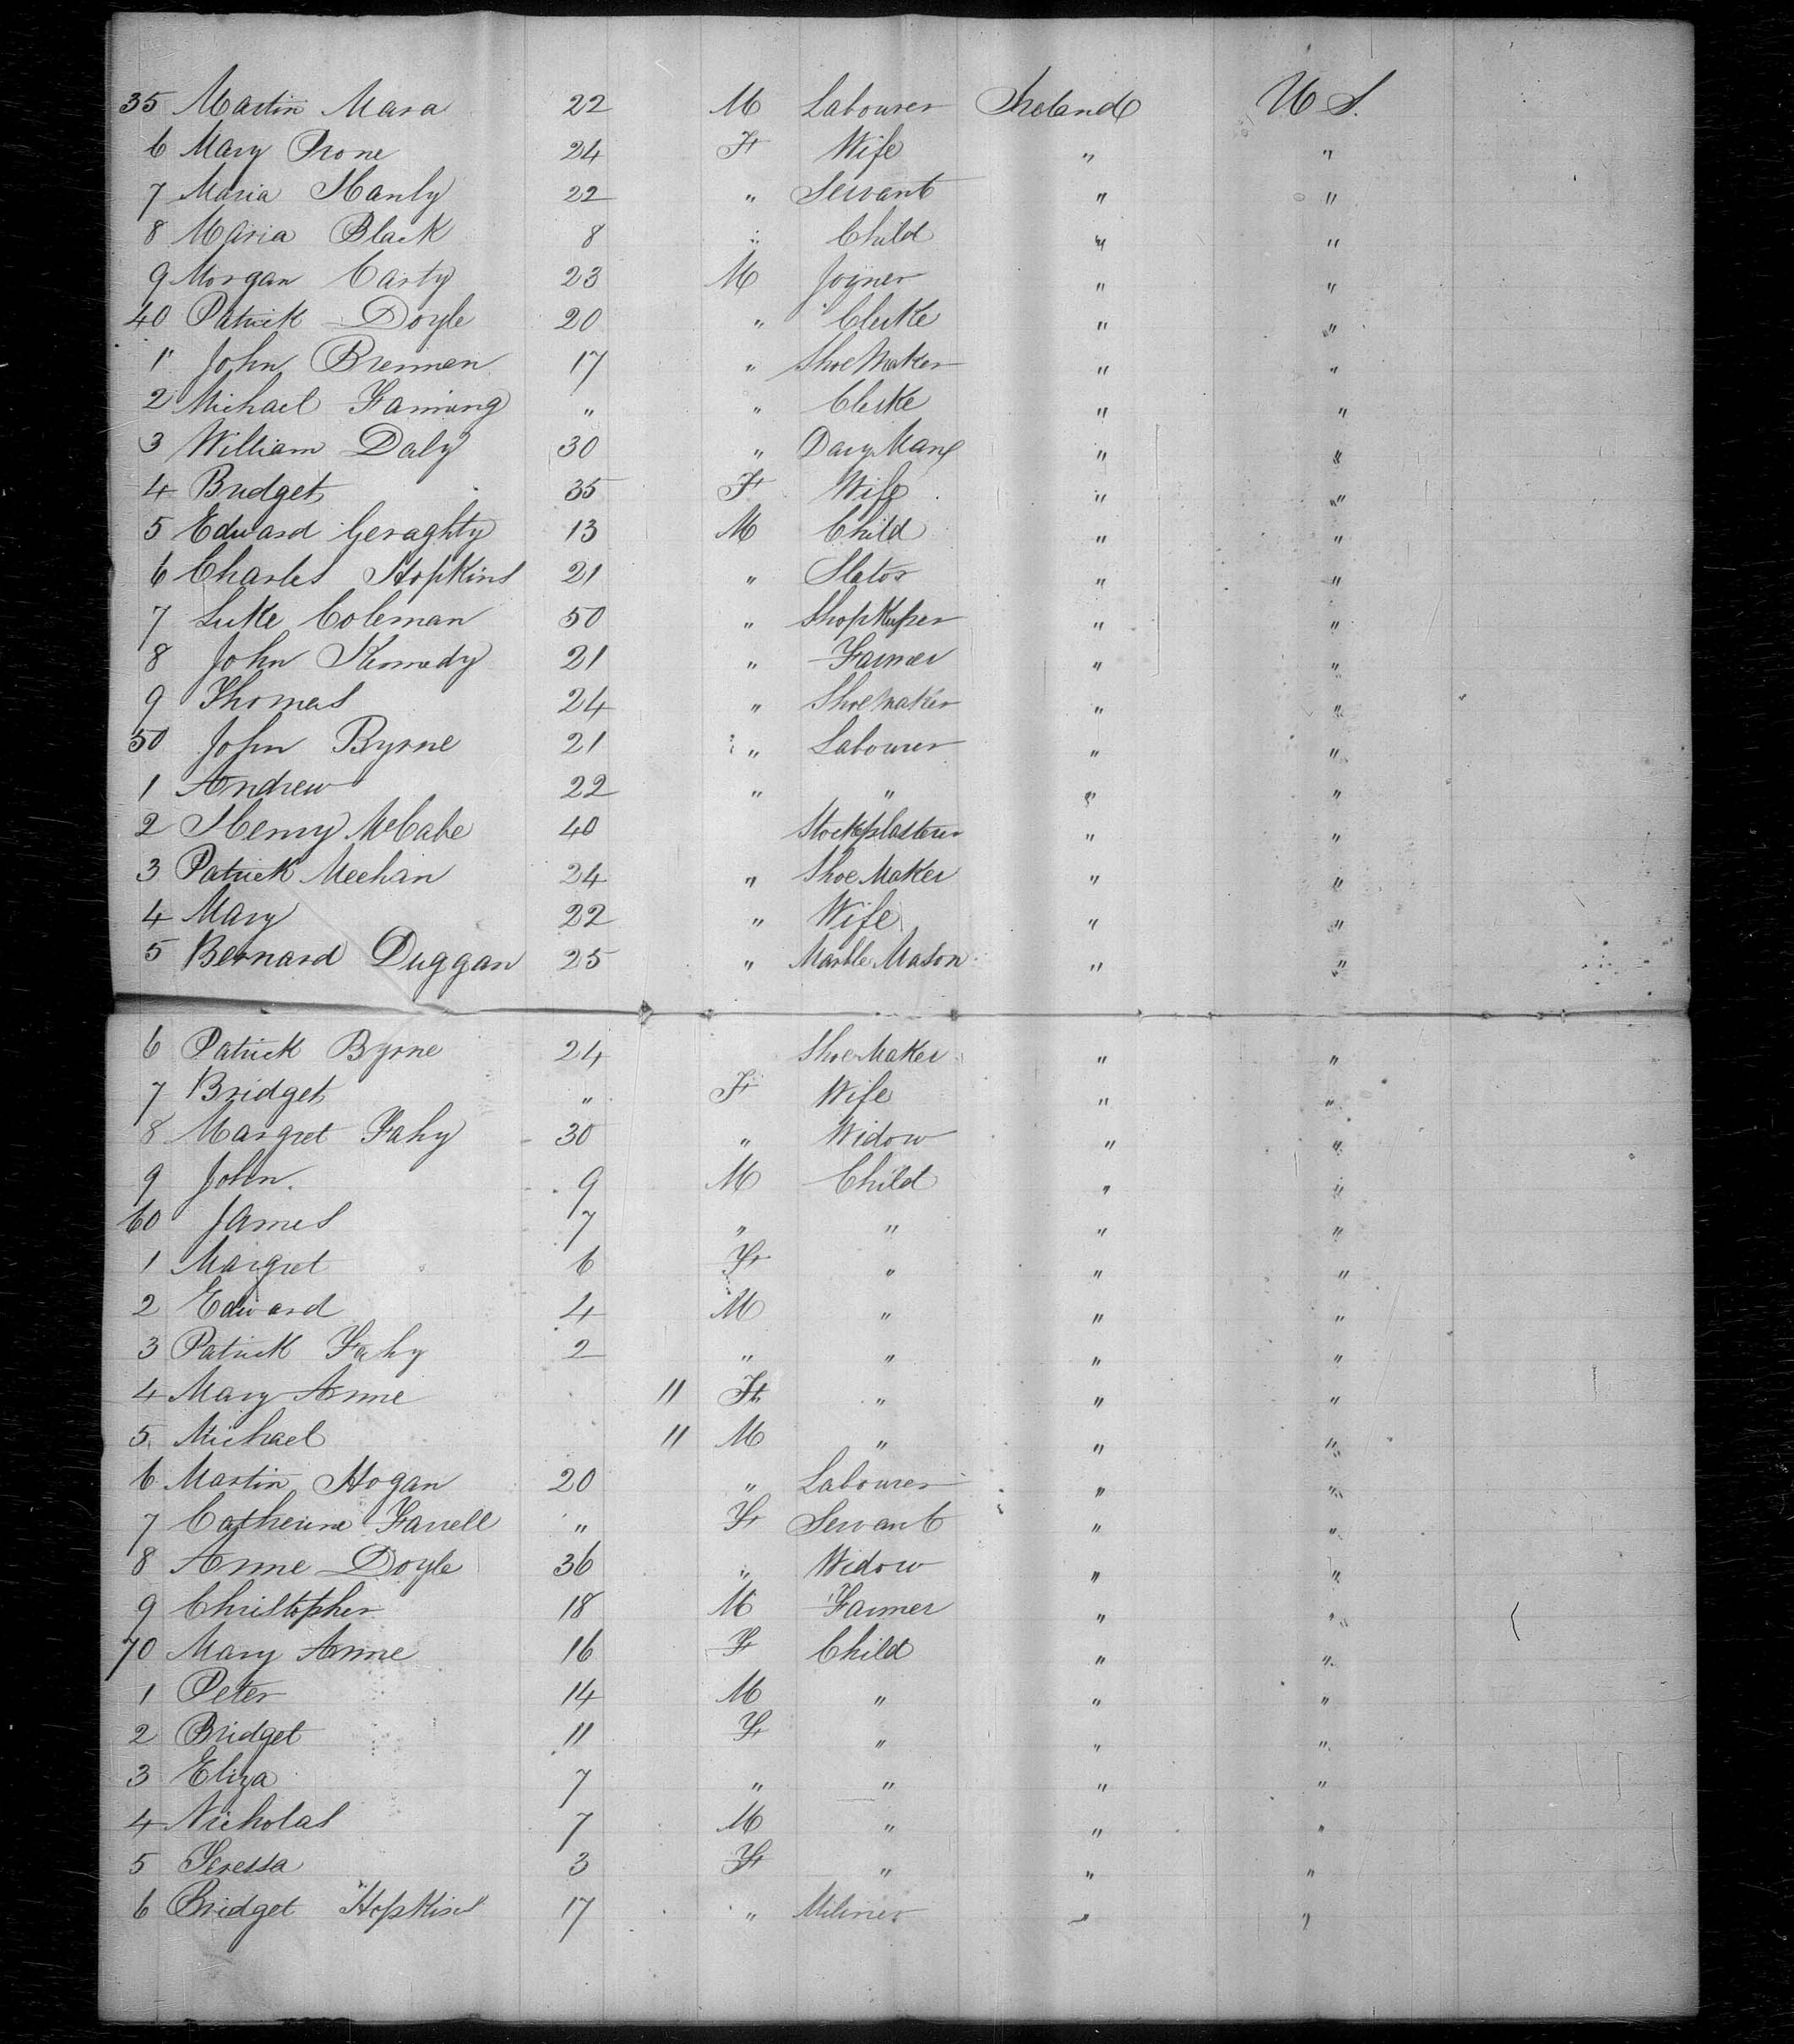 35 Martin Mara 22 M Labourer Ireland U S.
6 Mary Prone 24 F Wife " "
7 Maria Hanly 22 " Servant " "
8 Maria Black 8 " Child " "
9 Morgan Carty 23 M Joyner " "
40 Patrick Doyle 20 " Clerke " "
1 John Brennen 17 " Shoe Maker " "
2 Michael Fanning " " Clerke " "
3 William Daly 30 " Dary Man " "
4 Bridget 35 F Wife " "
5 Edward Geraghty 13 M Child " "
6 Charles Hopkins 21 " Slator " "
7 Luke Coleman 50 " Shopkeeper " "
8 John Kennedy 21 " Farmer " "
9 Thomas 24 " Shoemaker " "
50 John Byrne 21 " Labourer " "
1 Andrew 22 " " " "
2 Henry McCabe 40 Stockplasterer " "
3 Patrick Meehan 24 " Shoe Maker " "
4 Mary 22 " Wife " "
5 Bernard Duggan 25 " Marble Mason " "
6 Patrick Byrne 24 Shoe Maker " "
7 Bridget " F Wife " "
8 Margret Fahy 30 " Widow " "
9 John 9 M Child " "
60 James 7 " " " "
1 Margret 6 F " " "
2 Edward 4 M " " "
3 Patrick Fahy 2 " " " "
4 Mary Anne 11 F " " "
5 Michael 11 M " " "
6 Martin Hogan 20 " Labourer " "
7 Catherine Farrell " F Servant " "
8 Anne Doyle 36 " Widow " "
9 Christopher 18 M Farmer " "
70 Mary Anne 16 F Child " "
1 Peter 14 M " " "
2 Bridget 11 F " " "
3 Eliza 7 " " " "
4 Nicholas 7 M " " "
5 Teressa 3 F " " "
6 Bridget Hopkins 17 " Miliner " "